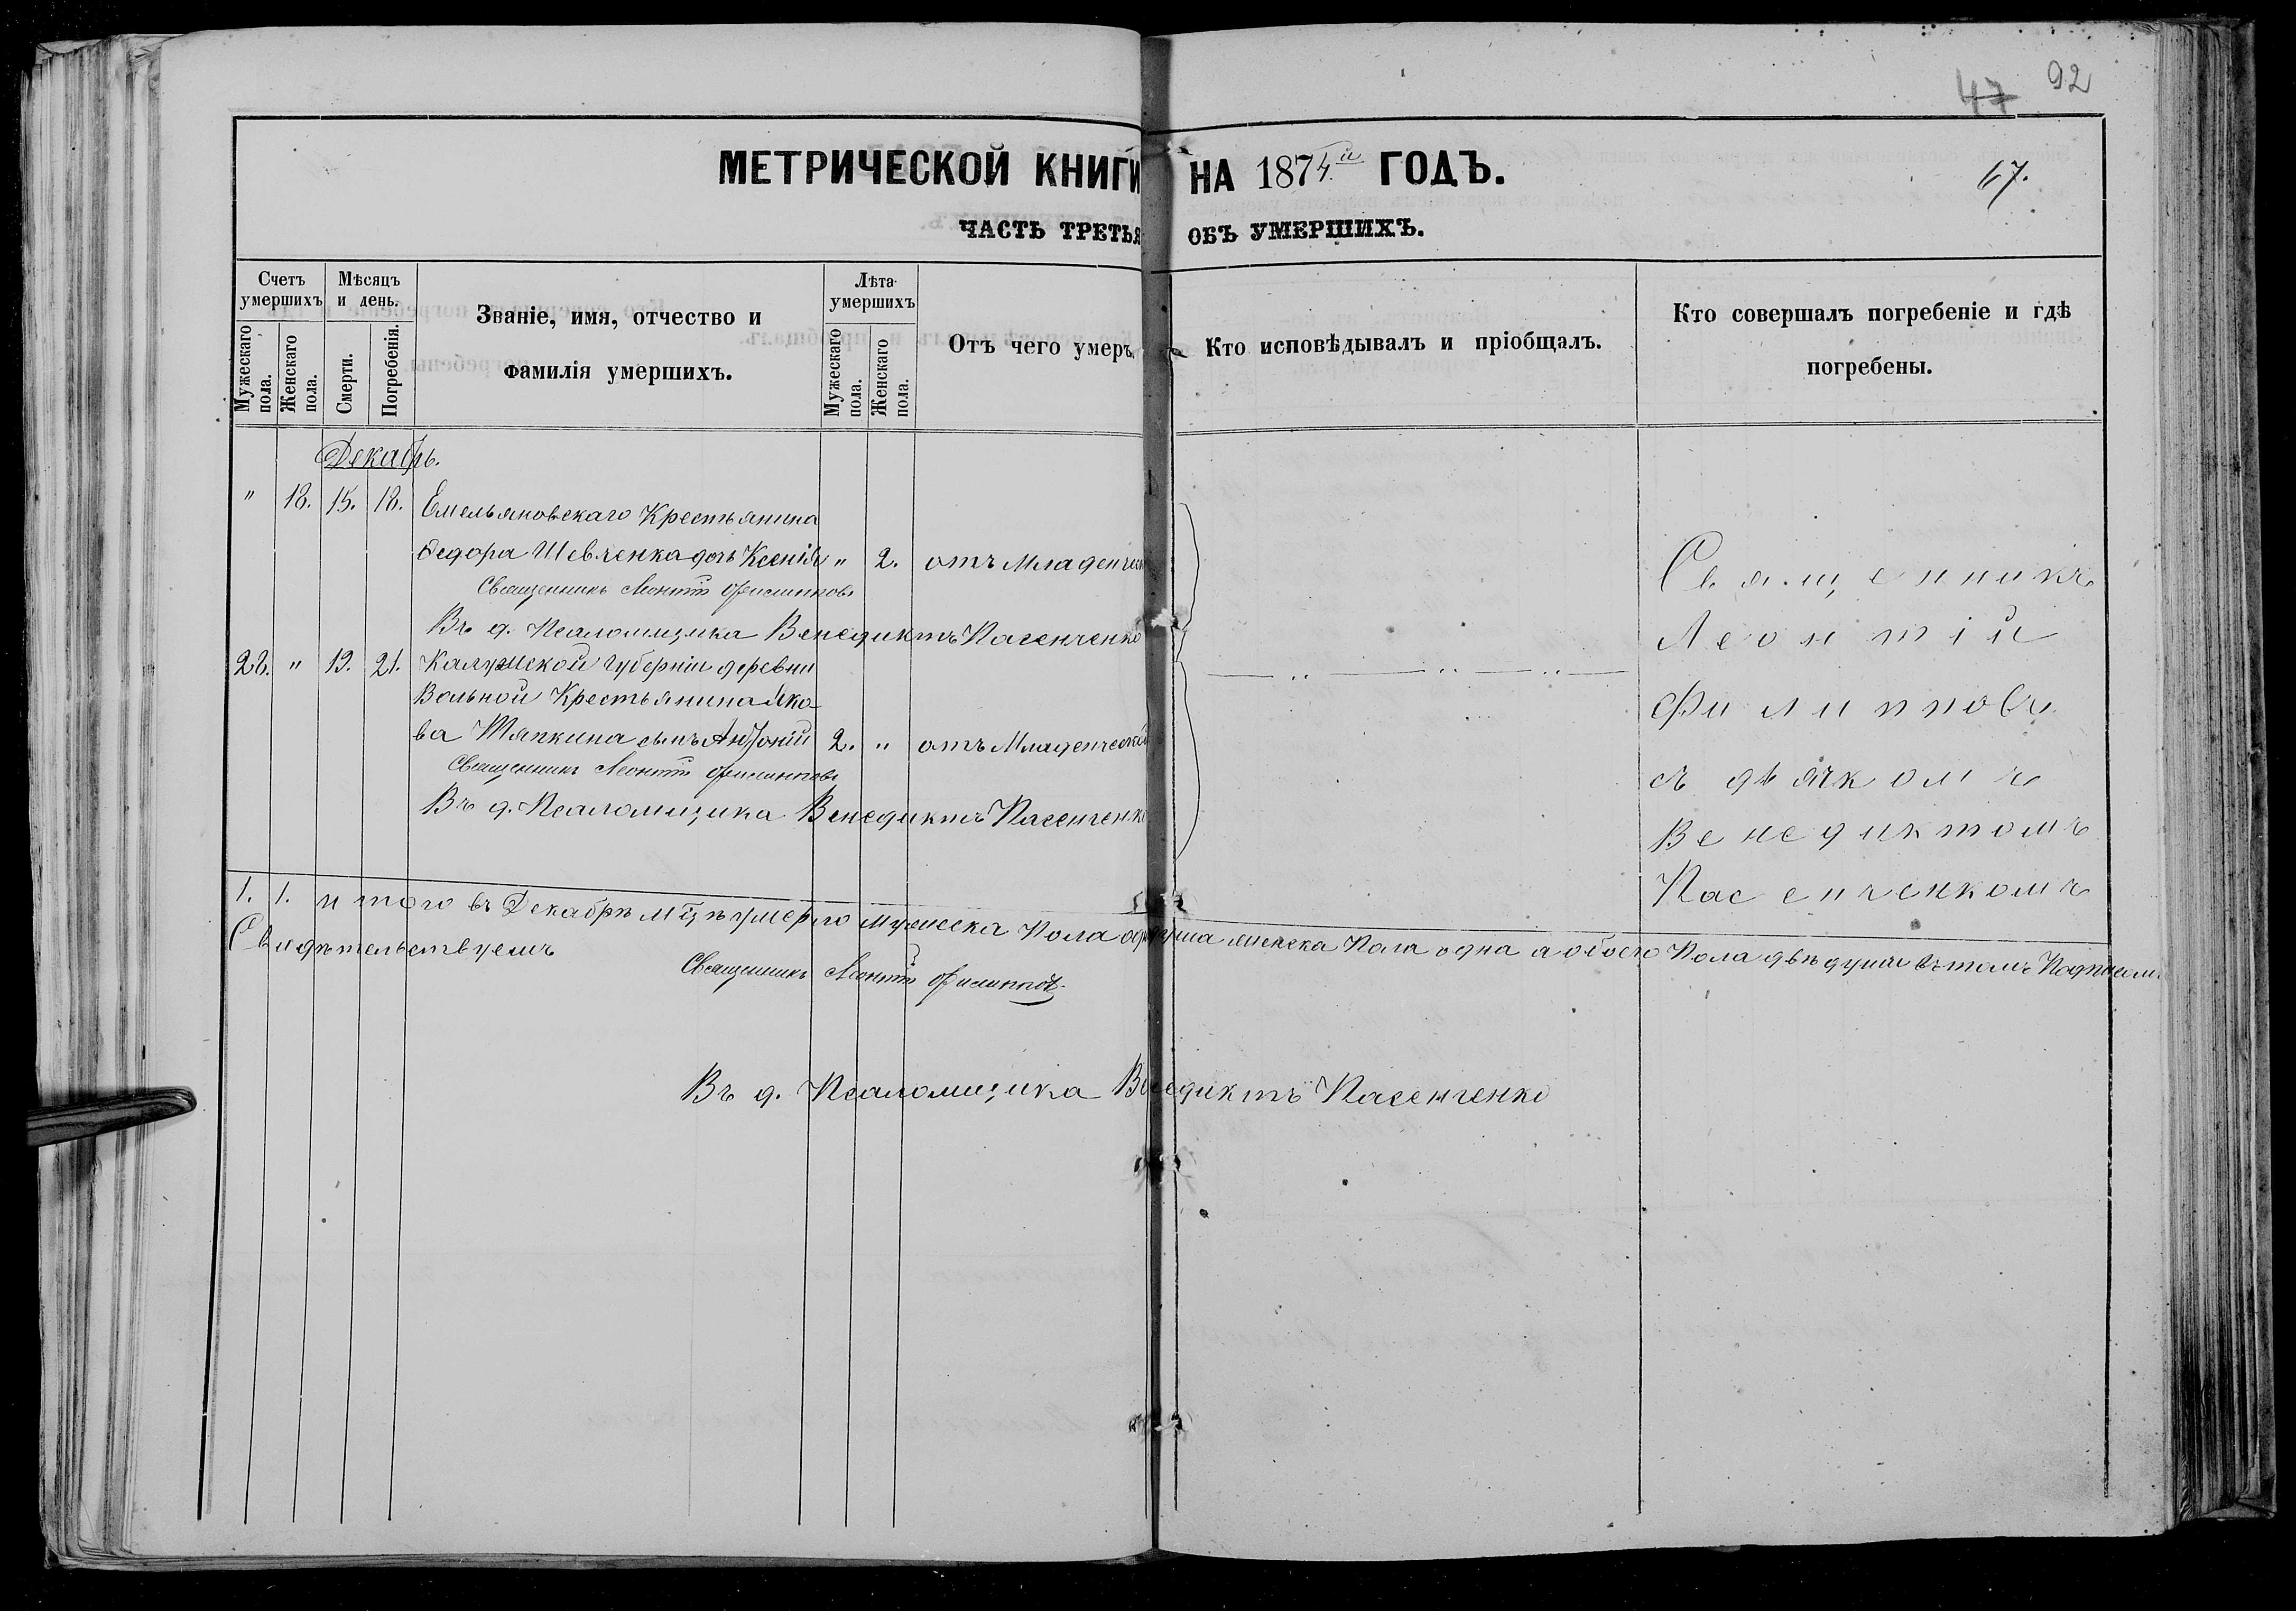 47 92
МЕТРИЧЕСКОЙ КНИГИ НА 1874й ГОДЪ.
67.
ЧАСТЬ ТРЕТЬЯ ОБЪ УМЕРШИХЪ.
Счетъ умершихъ
Мужескаго пола.
Женскаго пола.
Мѣсяцъ и день.
Смерти.
Погребенія.
Званіе, имя, отчество и
фамилія умершихъ.
Лѣта умершихъ
Мужескаго пола.
Женскаго пола.
Отъ чего умеръ.
Кто исповѣдывалъ и пріобщалъ.
Кто совершалъ погребеніе и гдѣ
погребены.
Декабрь.
" 18. 15. 18. Емельяновскаго Крестьянина
Федора Шевченка дочь Ксенія " 2. отъ Младенчес
Священникъ Леонтій Филипповъ
Въ д. Псаломщика Венедиктъ Пасенченко
28. " 19. 21. Калужской губерніи деревни
Вольной Крестьянина Яко
ва Тяпкина сынъ Антоній 2. " отъ Младенческой
Священникъ Леонтій Филипповъ
Въ д. Псаломщика Венедиктъ Пасенченко
Священникъ
Леонтій
Филипповъ
съ дьячкомъ
Венедиктомъ
Пасенченкомъ
1. 1. итого въ Декабрѣ мцѣ умерло мужеска Пола одна душа женска Пола одна а обоего Пола двѣ души въ томъ Подписомъ
Свидѣтельствуемъ
Священникъ Леонтій Филипповъ.
Въ д. Псаломщика Венедиктъ Пасенченко